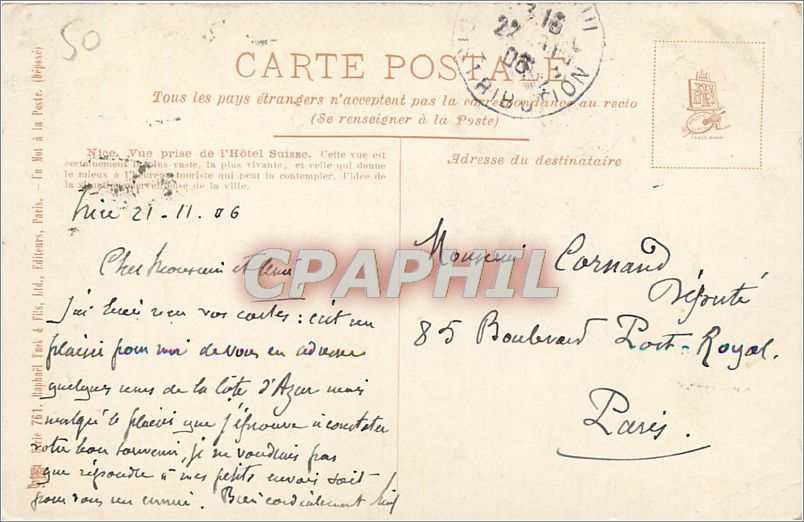 50
CARTE POSTALE
Tous les pays étrangers n'acceptent pas la correspondance au recto
(Se renseigner à la Poste)
Nice. Vue prise de l'Hôtel Suisse. Cette vue est
certainement la plus vaste, la plus vivante, et celle qui donne
le mieux à l'heureux touriste qui peut la contempler, l'idée de
la situation merveilleuse de la ville.
Adresse du destinataire
Série 761. Raphaël Tuck & Fils, Ltd., Editeurs, Paris. — Un Mot à la Poste. (Déposé)
22
06
DISTRIBUTION
CPAPHIL
Nice 21-11-06
Cher Monsieur et
J'ai bien reçu vos cartes : c'est un
plaisir pour moi de vous en adresser
quelques unes de la Côte d'Azur mais
malgré le plaisir que j'éprouve à constater
votre bon souvenir, je ne voudrais pas
que répondre à mes petits envois soit
pour vous un ennui. Bien cordialement
Monsieur Cornand
Député
85 Boulevard Port-Royal.
Paris.